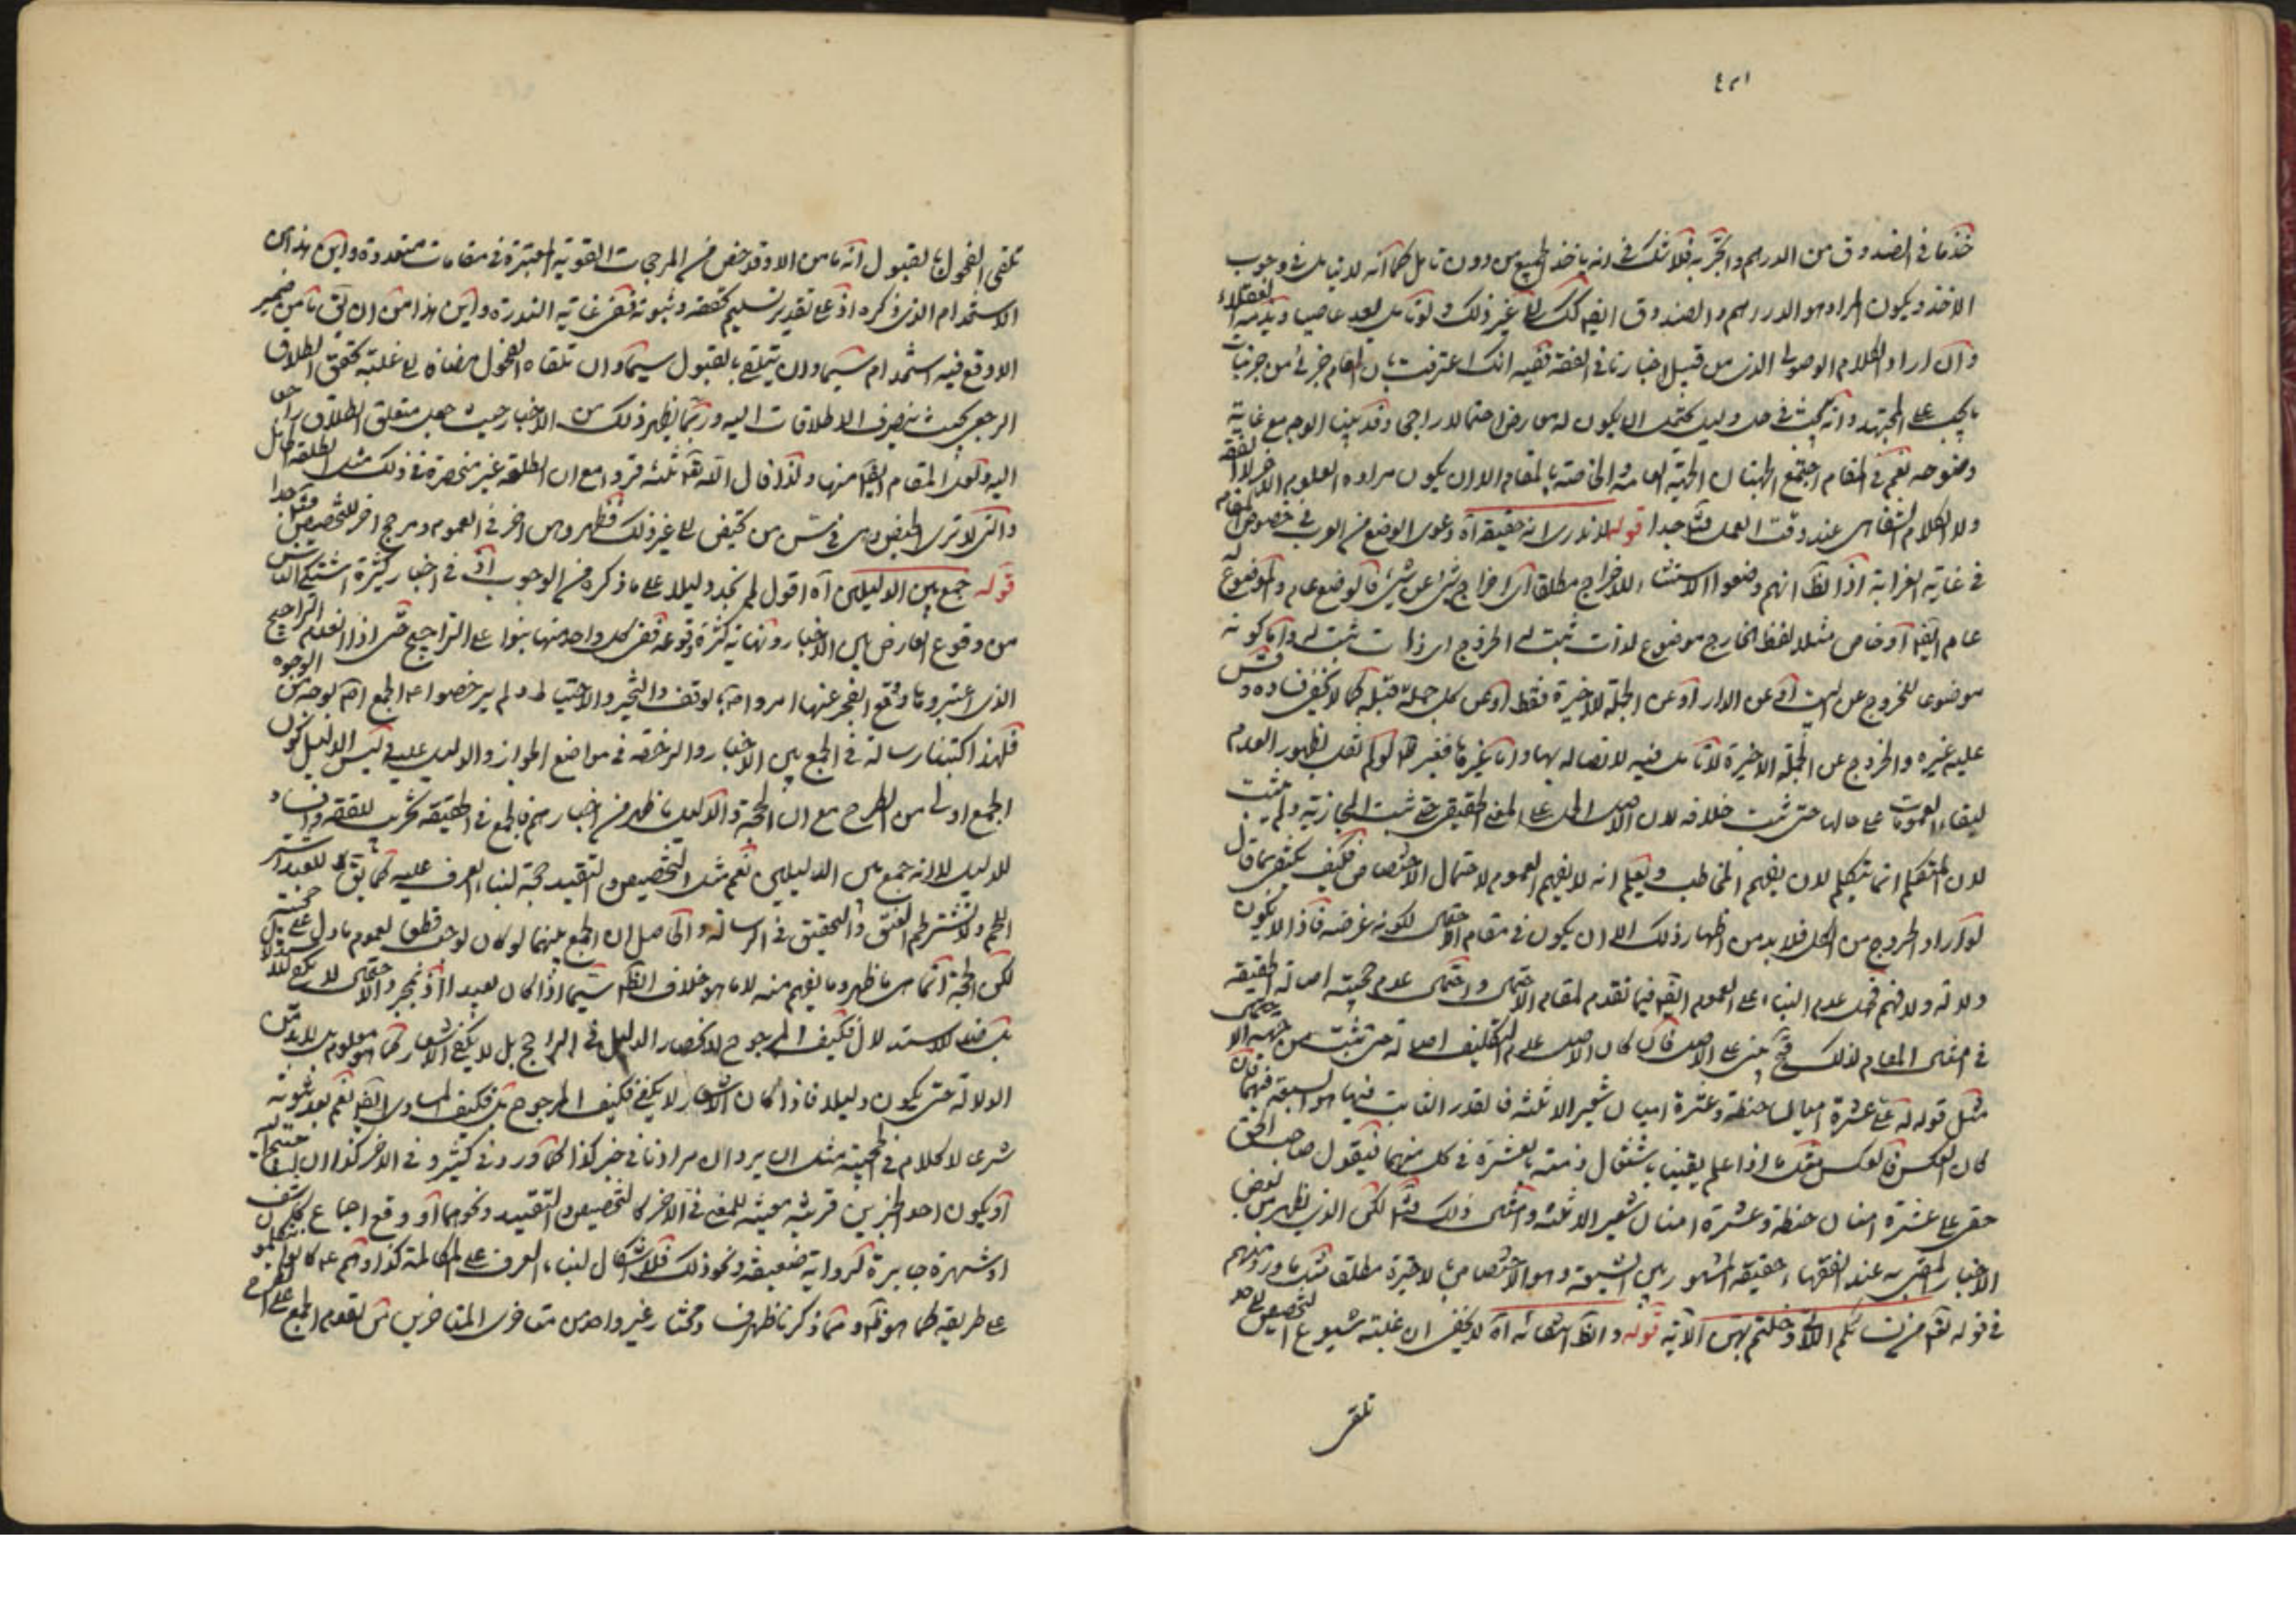 خذ ما في الصندوق من الدرهم والتجربة فلا شك في انه ياخذ الجميع من دون تامل كما انه لا يتامل في وجوب
الاخذ ويكون المراد هو الدرهم والصندوق ايضا كك الى غير ذلك ولو تامل يعد عاصيا ويذمه العقلاء
وان اراد الكلام الوصولى الذى من قبيل اخبارنا في الفقه ففيه انك اعترفت بان العام جزئى من جزئيات
ما يجب على المجتهد وانه يجب في كل دليل يحتمل ان يكون له معارض احتمالا راجحا وقد بينا الوجه مع غاية
وضوحه نعم في المقام اجتمع الجهتان الجهة العامة والخاصة بالمقام الا ان يكون مراده العلوم الاخر لا الفقه
ولا الكلام الشفاهى عند وقت العمل فتامل جدا قوله لاندرى انه حقيقة آه دعوى الوضع من العرب في خصوص المقام
في غاية الغرابة اذ الظ انهم وضعوا الاستثناء للاخراج مطلقا اى اخراج شئ عن شئ فالوضع عام والموضوع له
عام ايضا او خاص مثلا لفظ الخارج موضوع لذات ثبت له الخروج اى ذات ثبت له واما كونه
موضوعا للخروج عن البيت او عن الدار او عن الجملة الاخيرة فقط او عن كل جملة قبله كما لا يخفى فساده وقس
عليه غيره والخروج عن الجملة الاخيرة لا تامل فيه لاتصاله بها واما غيرها فغير ظ لو لم نقل بظهور العدم
لبقاء العمومات على حالها حتى يثبت خلافه لان الاصل الحمل على المعنى الحقيقى حتى يثبت المجازية ولم يثبت
لان المتكلم انما يتكلم لان يفهم المخاطب ويعلم انه لا يفهم العموم لاحتمال الاختصاص فكيف يكتفى بما قال
لو اراد الخروج من الكل فلا بد من اظهار ذلك الا ان يكون في مقام الاجمال لكونه غرضه فاذ الا يكون
دلالة ولا فهم فمجرد عدم البناء على العموم ايضا فيما تقدم لمقام الاجمال واجمال عدم حجية اصالة الحقيقة
في امثال المقام لذلك فتح يبنى على الاصل فان كان الاصل عدم التكليف اصالة حتى يثبت من جهة الا
مثل قوله له على عشرة اميال حنطة وعشرة اميال شعير الا ثلثة فالقدر الثابت فيها هو السبعة فيهما فان
كان العكس فالعكس بعد ما اذا علم يقينا باشتغال ذمته بالعشرة في كل منهما فيقول صاحب الحق
حقى على عشرة امنان حنطة وعشرة امنان شعير الا ثلثة وامثال ذلك فتامل لكن الذى يظهر من بعض
الاخبار المعتبرة عند الفقهاء حقيقة المشهور بين الشيعة وهو الاختصاص بالاخيرة مطلقا مثل ما ورد منهم
في قوله تعالى من نسائكم اللاتى دخلتم بهن الآية قوله والظ انتفائه آه لا يخفى ان غلبة شيوع التخصيص الى حد
تلقى
تلقى الفحول بالقبول انه ما من الا وقد خص من المرجحات القوية المعتبرة في مقامات متعددة واين هذا من
الاستخدام الذى ذكره اذ على تقدير تسليم تحققه وثبوته ففى غاية الندرة واين هذا من ان يق ما من ضمير
الا وقع فيه استخدام سيما وان يتلقى بالقبول سيما وان تلقاه الفحول مضافا الى غلبة تحقق الطلاق
الرجعى بحيث ينصرف الاطلاقات اليه وربما يظهر ذلك من الاخبار حيث جعل متعلق الطلاق راجعا
اليه ولعل المقام ايضا منها ولذا قال الله تعالى ثلثة قروء مع ان المطلقة غير منحصرة في ذلك مثل المطلقة الحامل
والتى لا ترى الحيض وهى في سن من تحيض الى غير ذلك فظهر وهن اخر في العموم ومرجح اخر للتخصيص فتامل جدا
قوله جمع بين الدليلين آه اقول لم نجد دليلا على ما ذكره من الوجوب اذ في اخبار كثيرة اشتكى الناس
من وقوع التعارض بين الاخبار ونهاية كثرة وقوعه ففى كل واحد منها بنوا على التراجيح حتى اذا انعدم التراجيح
الذى اعتبروها وقع الفجر عنها امروا بالتوقف والتخير والاحتياط ولم يرخصوا على الجمع اصلا لوجه من الوجوه
فلهذا اكتبنا رسالة في الجمع بين الاخبار والرخصة في مواضع الجواز والدليل عليه وليس الدليل كون
الجمع اولى من الطرح مع ان الحجة والدليل ما ظهر من اخبارهم فالجمع في الحقيقة تخريب للفقه وافساد
للدليل لا انه جمع بين الدليلين نعم مثل التخصيص والتقييد حجة لبناء العرف عليه كما يق للعبد اشتر
اللحم ولا تشتر لحم البقر والتحقيق في الرسالة والحاصل ان الجمع بينهما لو كان لوجب قطعا لعموم ما دل على حجيته
لكن الحجة انما هى ما ظهر وما يفهم منه لا ما هو خلاف الظ سيما اذا كان بعيدا اذ بمجرد الاحتمال لا يكفى للا
بل فسد الاستدلال فكيف المرجوح لانحصار الدليل في الراجح بل لا يكفى الاشعار كما هو معلوم بل لا بد من
الدلالة حتى يكون دليلا فاذا كان الاشعار لا يكفى فكيف المرجوح بل فكيف المساوى ايضا نعم بعد ثبوته
شرعا لا كلام في الحجية مثل ان يرد ان مرادنا في خبر كذا كما ورد في كثير وفى الاخر كذا
او يكون احد الخبرين قرينة معينة للمعنى في الاخر كالتخصيص والتقييد ونحوهما او وقع اجماع يكشف
او شهرة جابرة لرواية ضعيفة ونحو ذلك فلا اشكال لبناء العرف على المكالمة كذا وانهم
على طريقة كما هو ظ ومما ذكرنا ظهر فساد مختار غير واحد من متاخرى المتاخرين من تقدم الجمع على الطرح